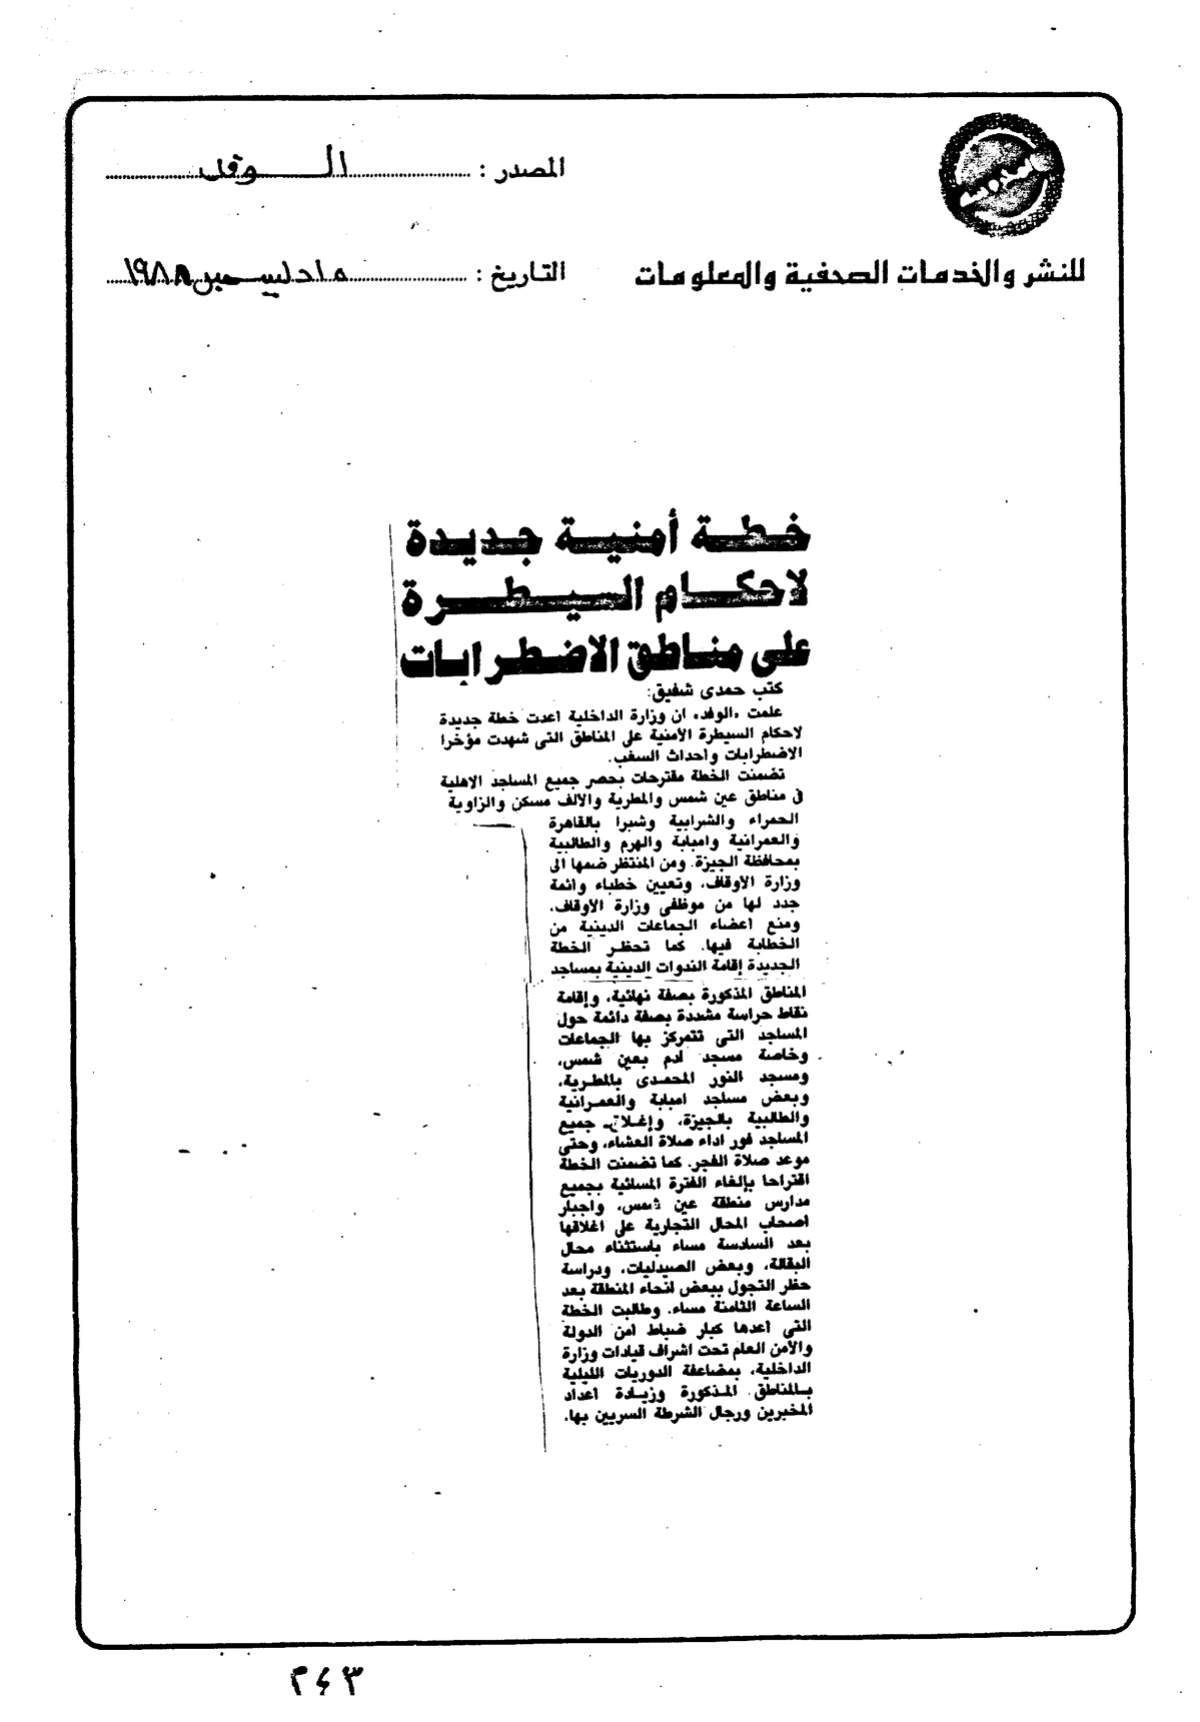 المصدر : الوفد
للنشر والخدمات الصحفية والمعلومات
التاريخ : ديسمبر ١٩٨٨
خطة أمنية جديدة
لاحكام السيطرة
على مناطق الاضطرابات
كتب حمدى شفيق:
علمت «الوفد» ان وزارة الداخلية أعدت خطة جديدة
لاحكام السيطرة الأمنية على المناطق التى شهدت مؤخرا
الاضطرابات وأحداث الشغب.
تضمنت الخطة مقترحات بحصر جميع المساجد الاهلية
فى مناطق عين شمس والمطرية والالف مسكن والزاوية
الحمراء والشرابية وشبرا بالقاهرة
والعمرانية وامبابة والهرم والطالبية
بمحافظة الجيزة. ومن المنتظر ضمها الى
وزارة الأوقاف، وتعيين خطباء وائمة
جدد لها من موظفى وزارة الأوقاف،
ومنع اعضاء الجماعات الدينية من
الخطابة فيها. كما تحظر الخطة
الجديدة إقامة الندوات الدينية بمساجد
المناطق المذكورة بصفة نهائية، وإقامة
نقاط حراسة مشددة بصفة دائمة حول
المساجد التى تتمركز بها الجماعات
وخاصة مسجد آدم بعين شمس،
ومسجد النور المحمدى بالمطرية،
وبعض مساجد امبابة والعمرانية
والطالبية بالجيزة، وإغلاق جميع
المساجد فور اداء صلاة العشاء، وحتى
موعد صلاة الفجر. كما تضمنت الخطة
اقتراحا بإلغاء الفترة المسائية بجميع
مدارس منطقة عين شمس، واجبار
أصحاب المحال التجارية على اغلاقها
بعد السادسة مساء باستثناء محال
البقالة، وبعض الصيدليات، ودراسة
حظر التجول ببعض انحاء المنطقة بعد
الساعة الثامنة مساء. وطالبت الخطة
التى أعدها كبار ضباط امن الدولة
والأمن العام تحت اشراف قيادات وزارة
الداخلية، بمضاعفة الدوريات الليلية
بالمناطق المذكورة وزيادة اعداد
المخبرين ورجال الشرطة السريين بها.
٢٤٣